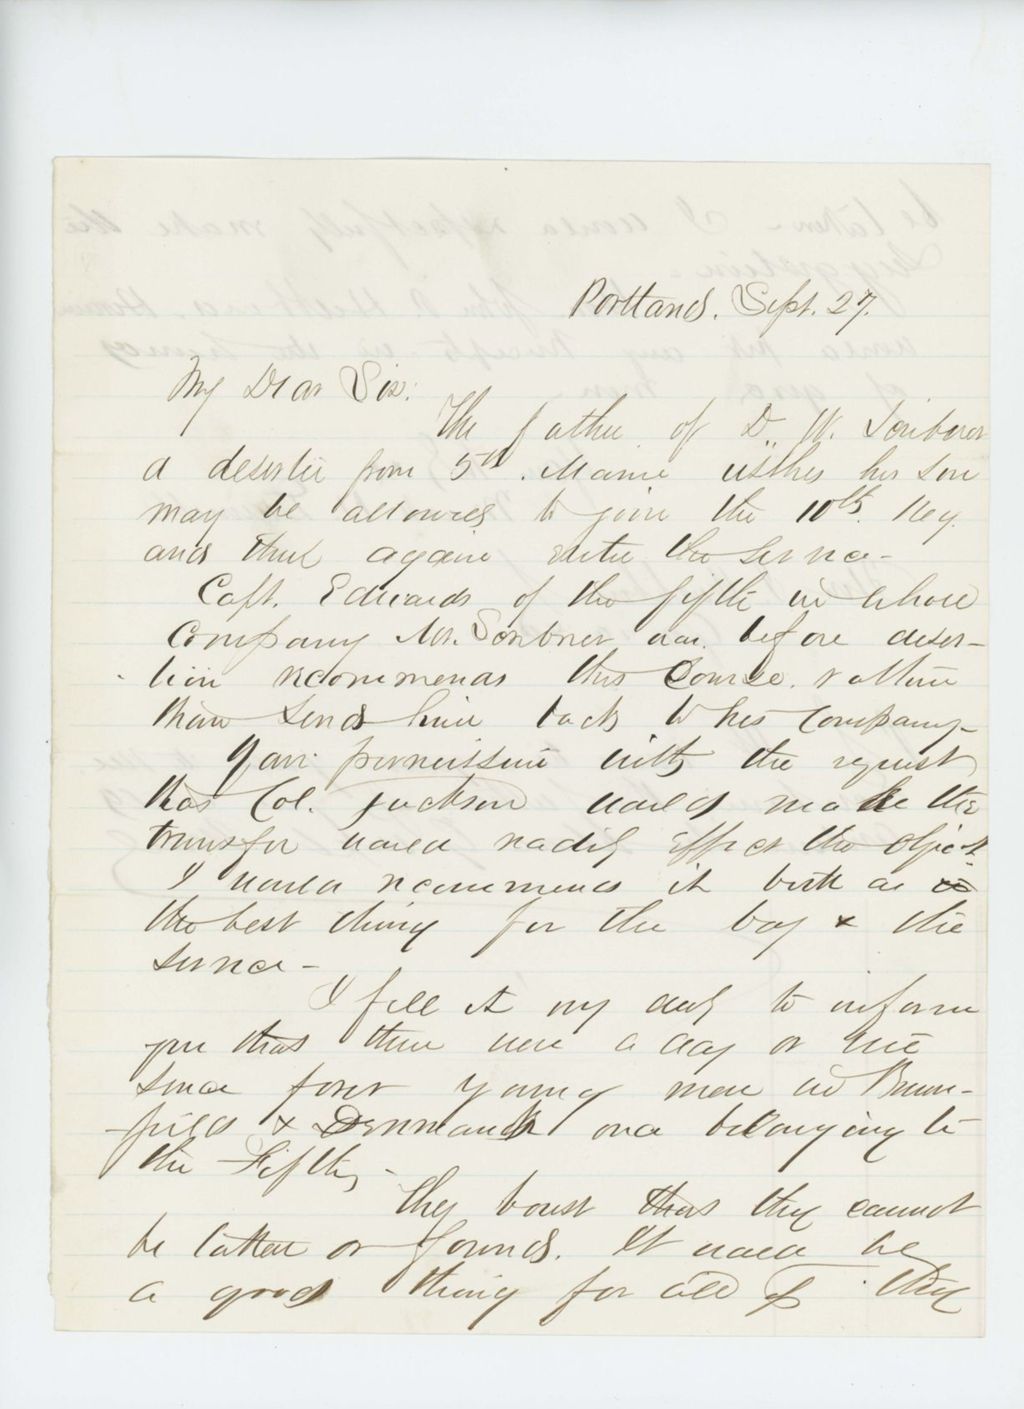 Portland. Sept. 27.
My Dear Sir:
The father of D. W. Scribner
a deserter from 5th. Maine wishes his son
may be allowed to join the 10th. Reg.
and thus again enter the service-
Capt. Edwards of the fifth in whose
Company Mr. Scribner was before deser-
tion recommends this course, rather
than send him back to his Company-
Your permission with the request
that Col. Jackson would make the
transfer would readily effect the object
I would recommend it both as
the best thing for the boy & the
service-
I feel it my duty to inform
you that there were a day or two
since four young men in Brown-
-field & Denmark once belonging to
the Fifth,-
They boast that they cannot
be taken or found. It would be
a good thing for all if they